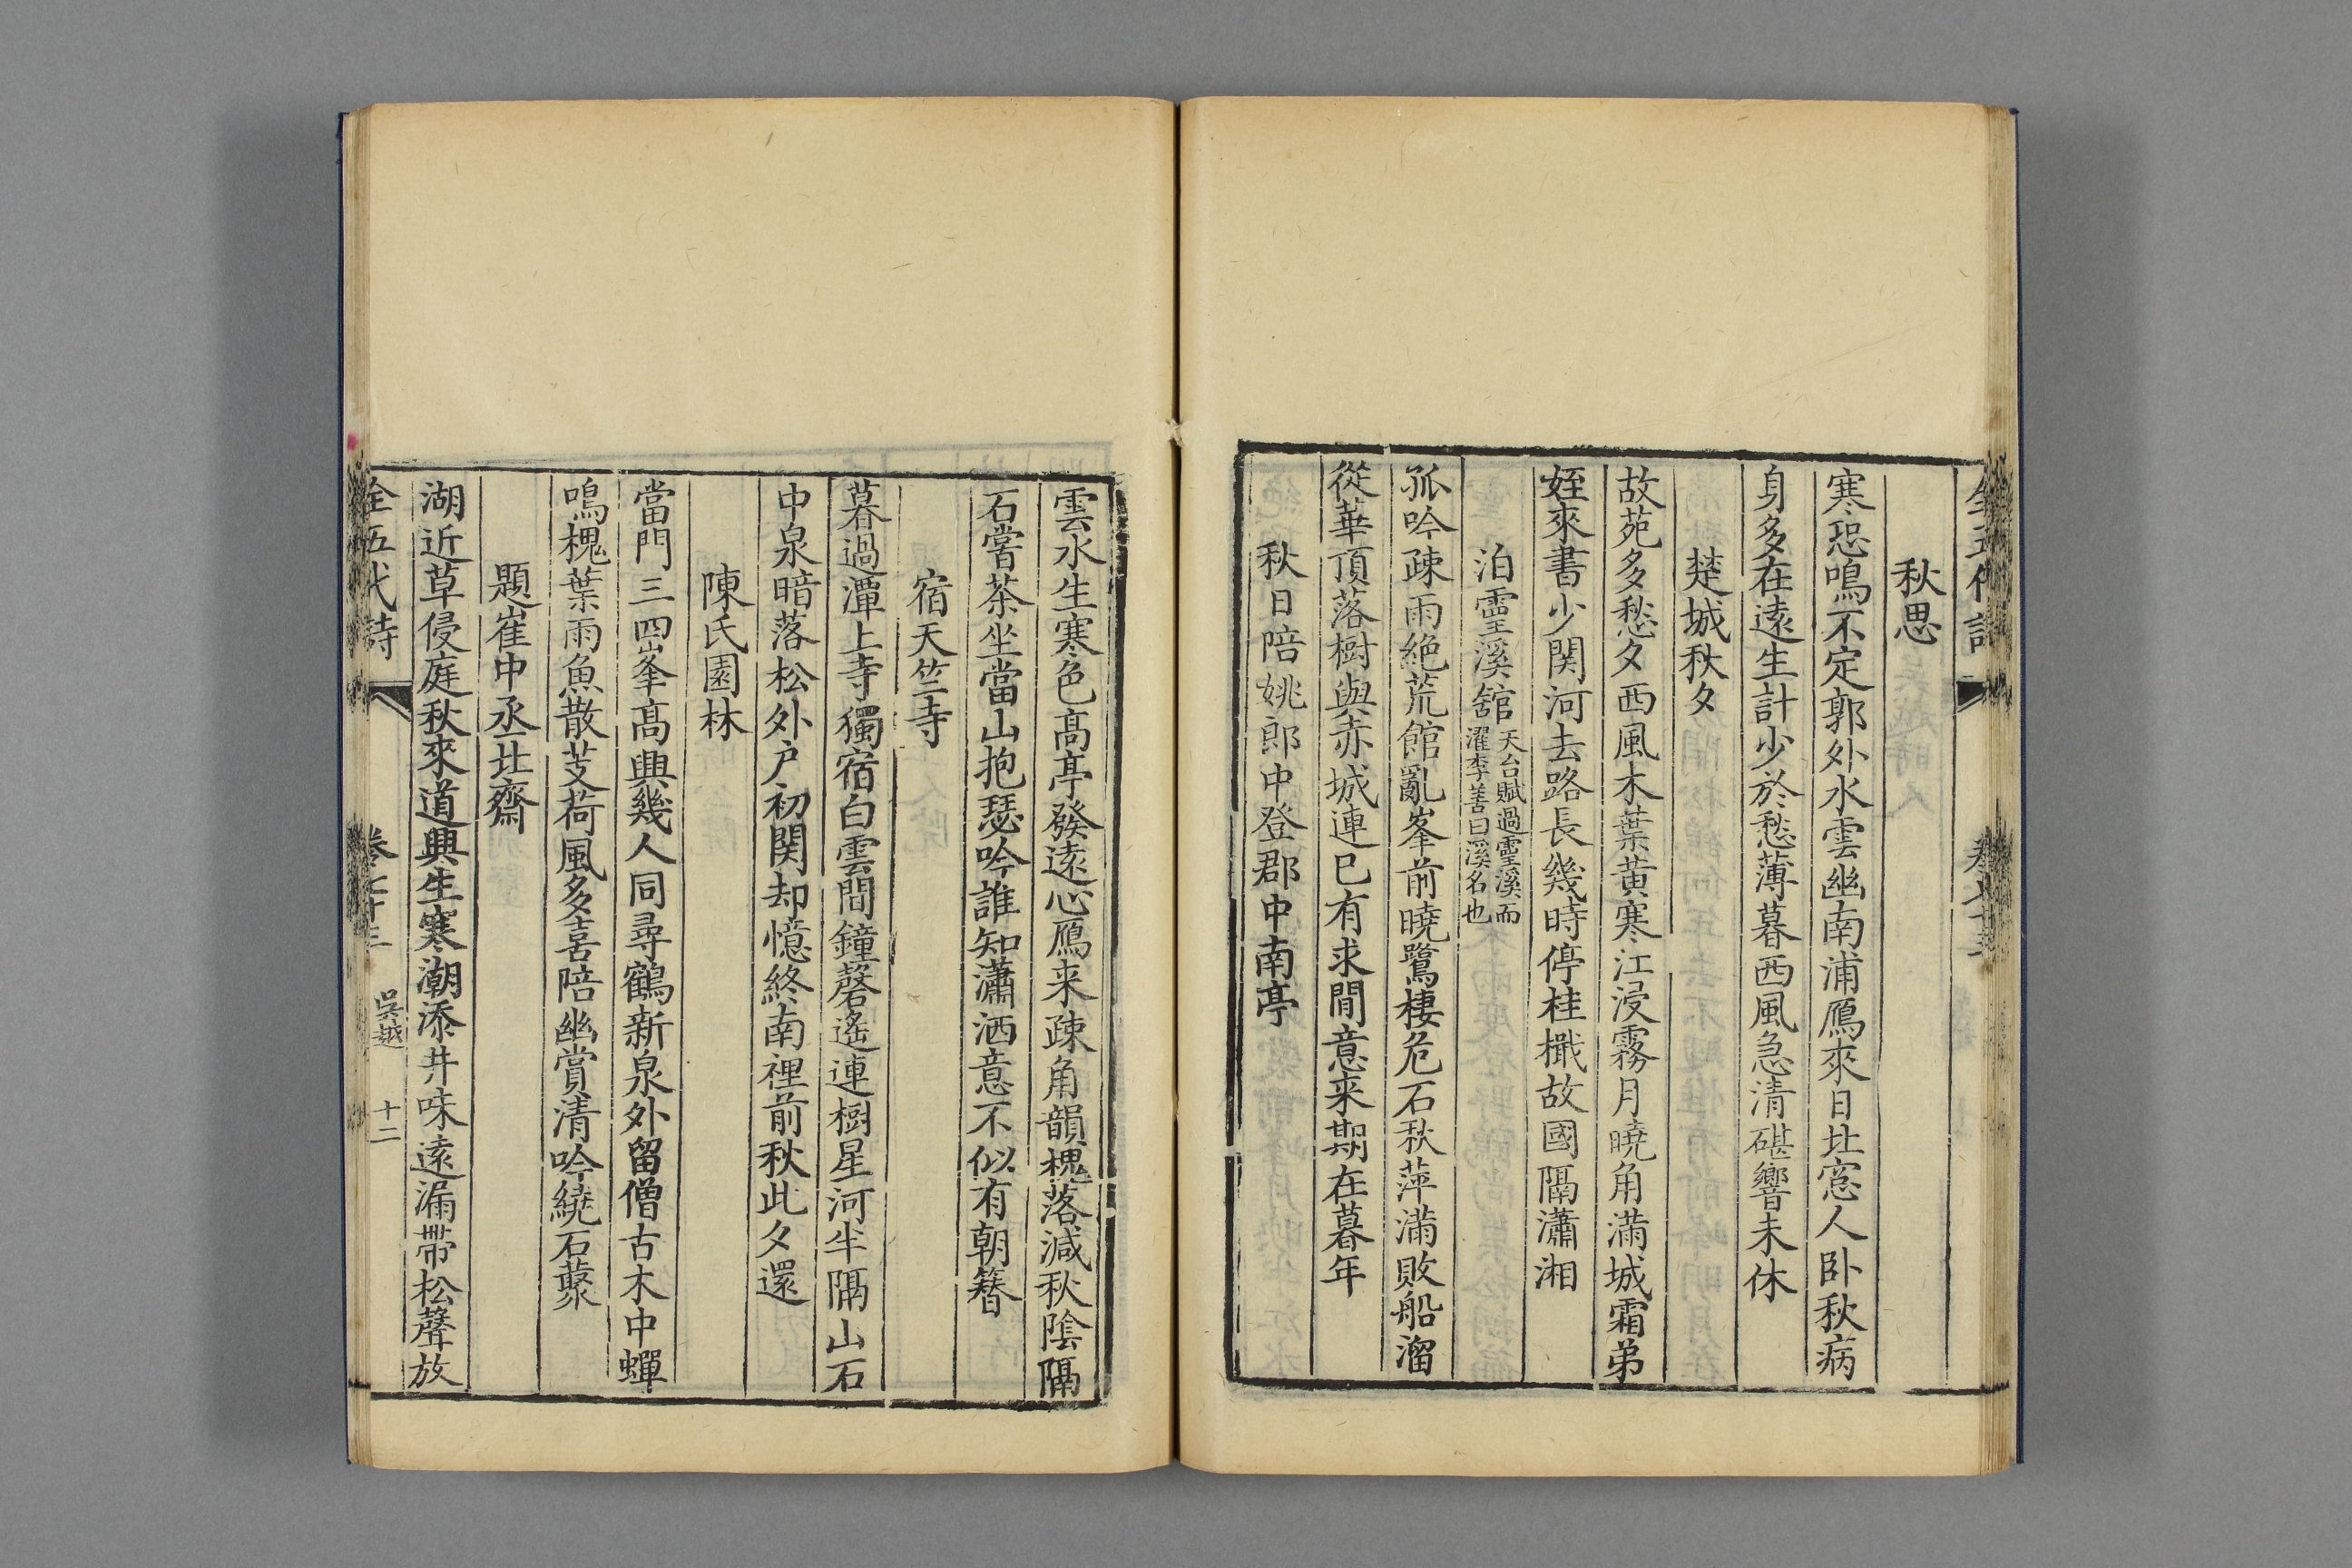 秋思
寒恐鳴不定郭外水雲幽南浦鴈來日北窻人卧秋病
身多在遠生計少於愁薄暮西風急清碪響未休
楚城秋夕
故苑多愁夕西風木葉黄寒江浸霧月曉角滿城霜弟
姪來書少関河去路長幾時停桂檝故國隔瀟湘
泊靈溪館天台賦過靈溪而濯李善曰溪名也
孤吟疎雨絶荒館亂峯前曉鷺棲危石秋萍滿敗船溜
從華頂落樹與赤城連已有求閒意来期在暮年
秋日陪姚郎中登郡中南亭
雲水生寒色高亭發遠心鴈来疎角韻槐落減秋陰隔
石嘗茶坐當山抱瑟吟誰知瀟洒意不似有朝簪
宿天竺寺
暮過潭上寺獨宿白雲間鐘磬遙連樹星河半隔山石
中泉暗落松外户初関却憶終南裡前秋此夕還
陳氏園林
當門三四峯高興幾人同尋鶴新泉外留僧古木中蟬
鳴槐葉雨魚散芰荷風多喜陪幽賞清吟繞石藂
題崔中丞北齋
湖近草侵庭秋來道興生寒潮添井味遠漏帶松聲放
全五代詩 卷七十三 吳越 十二